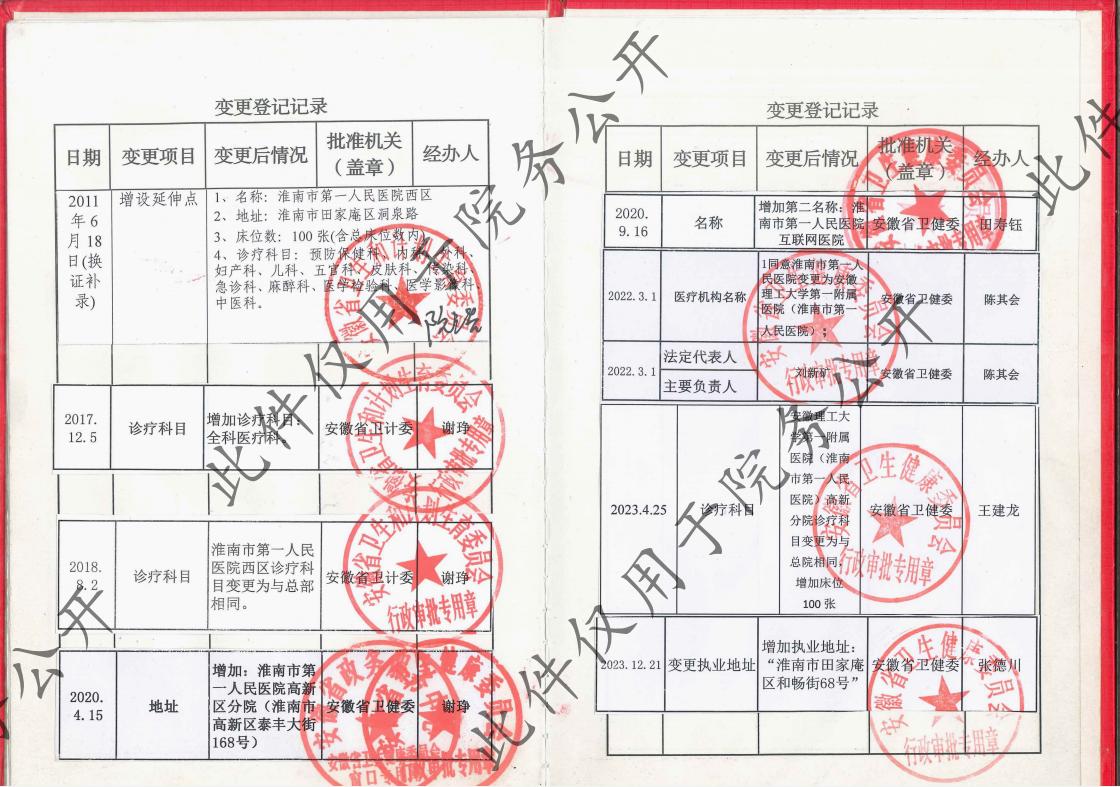 变更登记记录
日期 变更项目 变更后情况 批准机关 经办人
（盖章）
2011
年6
月18
日(换
证补
录)
增设延伸点
1、名称：淮南市第一人民医院西区
2、地址：淮南市田家庵区洞泉路
3、床位数：100张(含总床位数内)
4、诊疗科目：预防保健科、内科、外科、
妇产科、儿科、五官科、皮肤科、传染科、
急诊科、麻醉科、医学检验科、医学影像科、
中医科。
2017.
12.5
诊疗科目
增加诊疗科目：
全科医疗科。
安徽省卫计委
谢琤
2018.
8.2
诊疗科目
淮南市第一人民
医院西区诊疗科
目变更为与总部
相同。
安徽省卫计委
谢琤
2020.
4.15
地址
增加：淮南市第
一人民医院高新
区分院（淮南市
高新区泰丰大街
168号）
安徽省卫健委
谢琤
变更登记记录
日期 变更项目 变更后情况 批准机关 经办人
（盖章）
2020.
9.16
名称
增加第二名称：淮
南市第一人民医院
互联网医院
安徽省卫健委
田寿钰
2022.3.1
医疗机构名称
1同意淮南市第一人
民医院变更为安徽
理工大学第一附属
医院（淮南市第一
人民医院）；
安徽省卫健委
陈其会
2022.3.1
法定代表人
主要负责人
刘新矿
安徽省卫健委
陈其会
2023.4.25
诊疗科目
安徽理工大
学第一附属
医院（淮南
市第一人民
医院）高新
分院诊疗科
目变更为与
总院相同，
增加床位
100张
安徽省卫健委
王建龙
2023.12.21
变更执业地址
增加执业地址：
“淮南市田家庵
区和畅街68号”
安徽省卫健委
张德川
安徽省卫生和计划生育委员会
行政审批专用章
安徽省卫生和计划生育委员会
行政审批专用章
安徽省卫生健康委员会
行政审批专用章
安徽省卫生健康委员会
行政审批专用章
安徽省卫生健康委员会
行政审批专用章
此件仅用于院务公开
此件仅用于院务公开
公开
此件